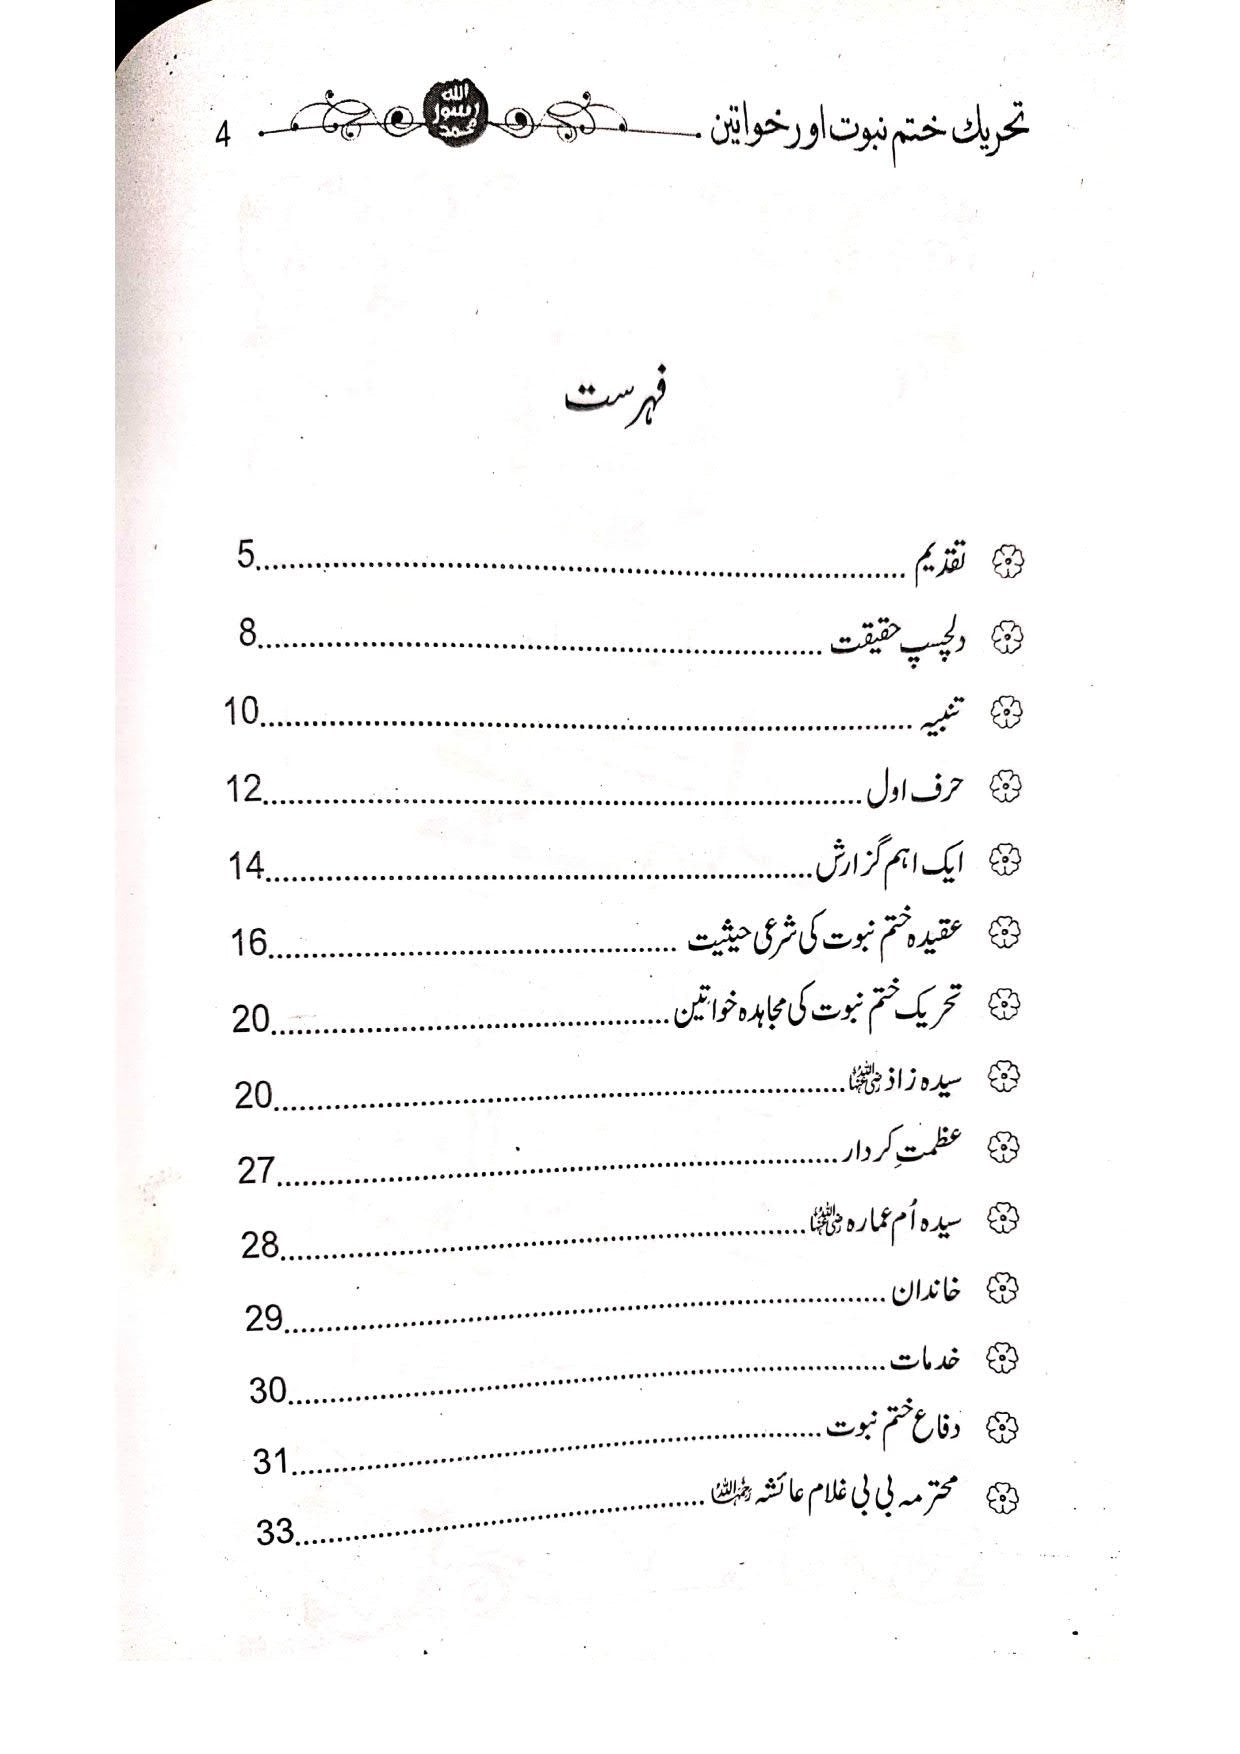 تحریک ختم نبوت اور خواتین 4
الله
رسول
محمد
فہرست
تقدیم 5
دلچسپ حقیقت 8
تنبیہ 10
حرف اول 12
ایک اہم گزارش 14
عقیدہ ختم نبوت کی شرعی حیثیت 16
تحریک ختم نبوت کی مجاہدہ خواتین 20
سیدہ زاذ رضی اللہ عنہا 20
عظمتِ کردار 27
سیدہ اُم عمارہ رضی اللہ عنہا 28
خاندان 29
خدمات 30
دفاع ختم نبوت 31
محترمہ بی بی غلام عائشہ رحمہا اللہ 33